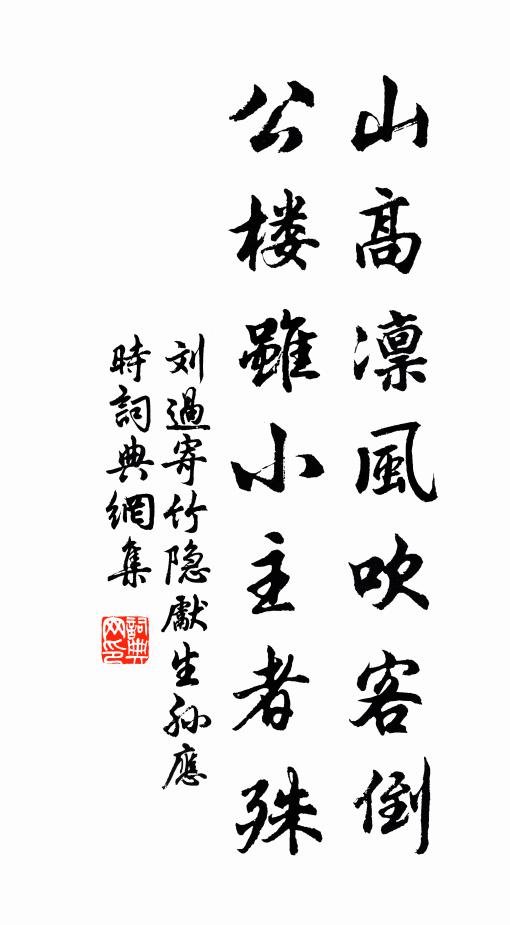 山高凛風吹客倒
公楼雖小主者殊
刘過寄竹隐獻生孙應
時詞典網集
詞典网印